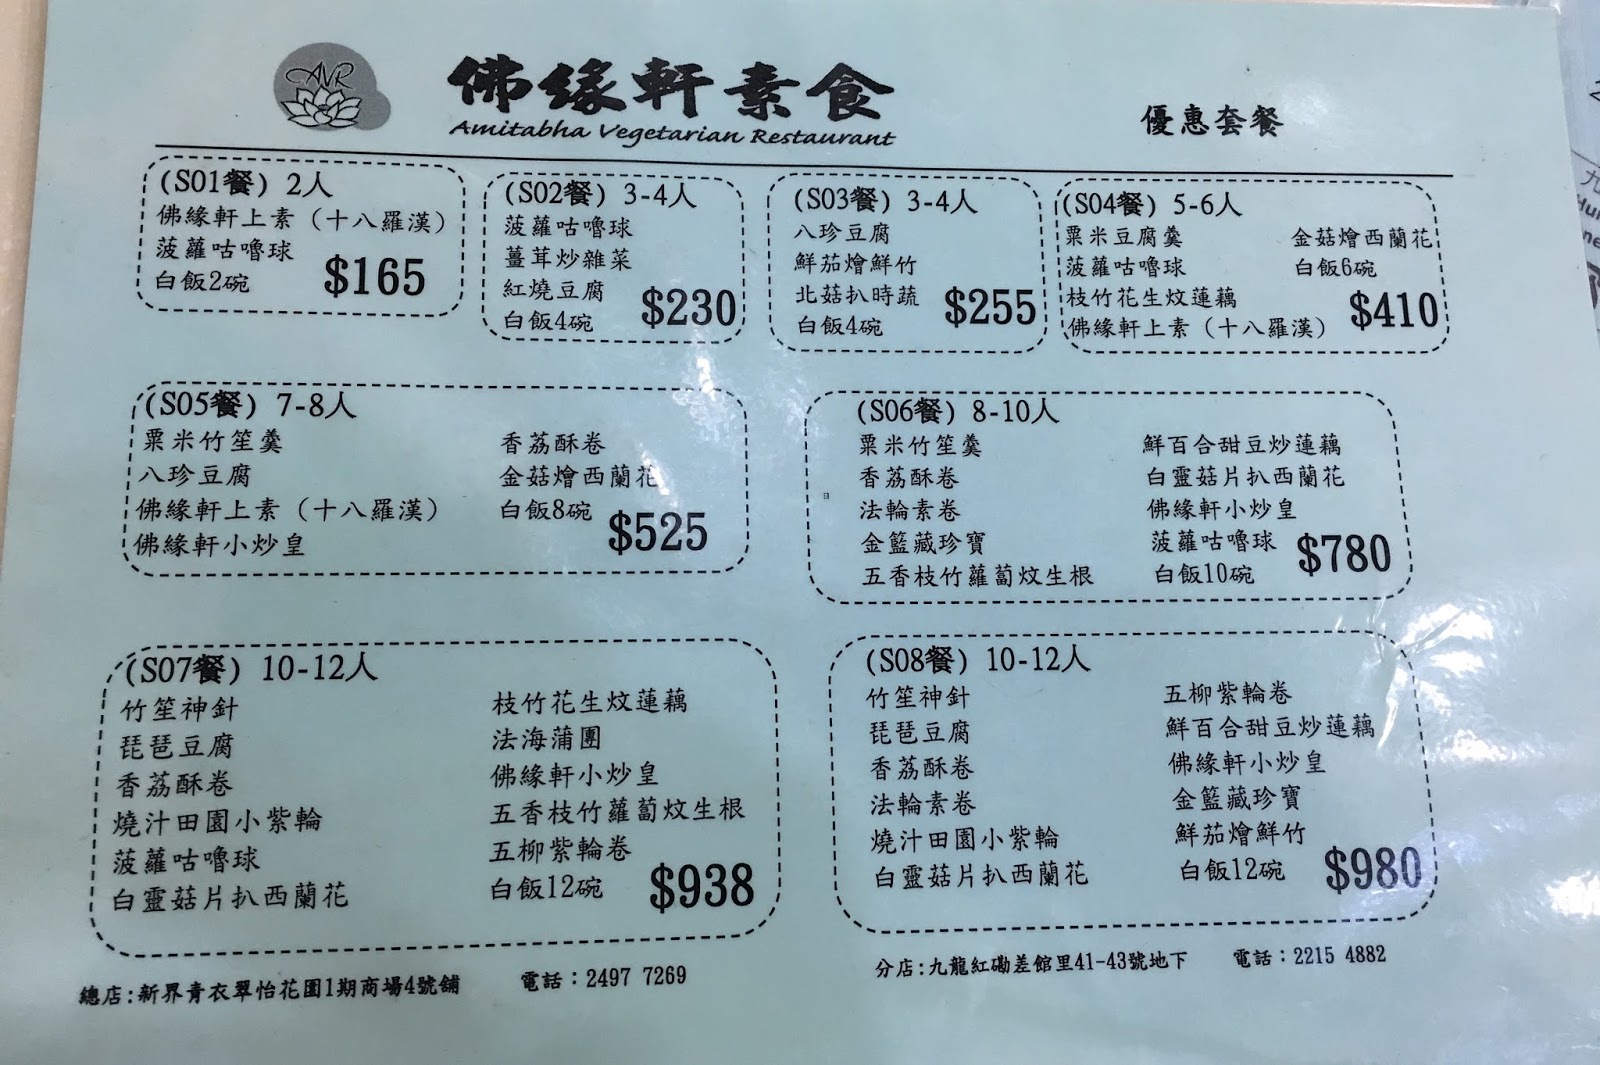 AVR
佛緣軒素食
Amitabha Vegetarian Restaurant
優惠套餐
(S01餐) 2人
佛緣軒上素（十八羅漢）
菠蘿咕嚕球
白飯2碗
$165
(S02餐) 3-4人
菠蘿咕嚕球
薑茸炒雜菜
紅燒豆腐
白飯4碗
$230
(S03餐) 3-4人
八珍豆腐
鮮茄燴鮮竹
北菇扒時蔬
白飯4碗
$255
(S04餐) 5-6人
粟米豆腐羹
菠蘿咕嚕球
枝竹花生炆蓮藕
佛緣軒上素（十八羅漢）
金菇燴西蘭花
白飯6碗
$410
(S05餐) 7-8人
粟米竹笙羹
八珍豆腐
佛緣軒上素（十八羅漢）
佛緣軒小炒皇
香荔酥卷
金菇燴西蘭花
白飯8碗
$525
(S06餐) 8-10人
粟米竹笙羹
香荔酥卷
法輪素卷
金籃藏珍寶
五香枝竹蘿蔔炆生根
鮮百合甜豆炒蓮藕
白靈菇片扒西蘭花
佛緣軒小炒皇
菠蘿咕嚕球
白飯10碗
$780
(S07餐) 10-12人
竹笙神針
琵琶豆腐
香荔酥卷
燒汁田園小紫輪
菠蘿咕嚕球
白靈菇片扒西蘭花
枝竹花生炆蓮藕
法海蒲團
佛緣軒小炒皇
五香枝竹蘿蔔炆生根
五柳紫輪卷
白飯12碗
$938
(S08餐) 10-12人
竹笙神針
琵琶豆腐
香荔酥卷
法輪素卷
燒汁田園小紫輪
白靈菇片扒西蘭花
五柳紫輪卷
鮮百合甜豆炒蓮藕
佛緣軒小炒皇
金籃藏珍寶
鮮茄燴鮮竹
白飯12碗
$980
總店:新界青衣翠怡花園1期商場4號舖 電話：2497 7269
分店:九龍紅磡差館里41-43號地下 電話：2215 4882